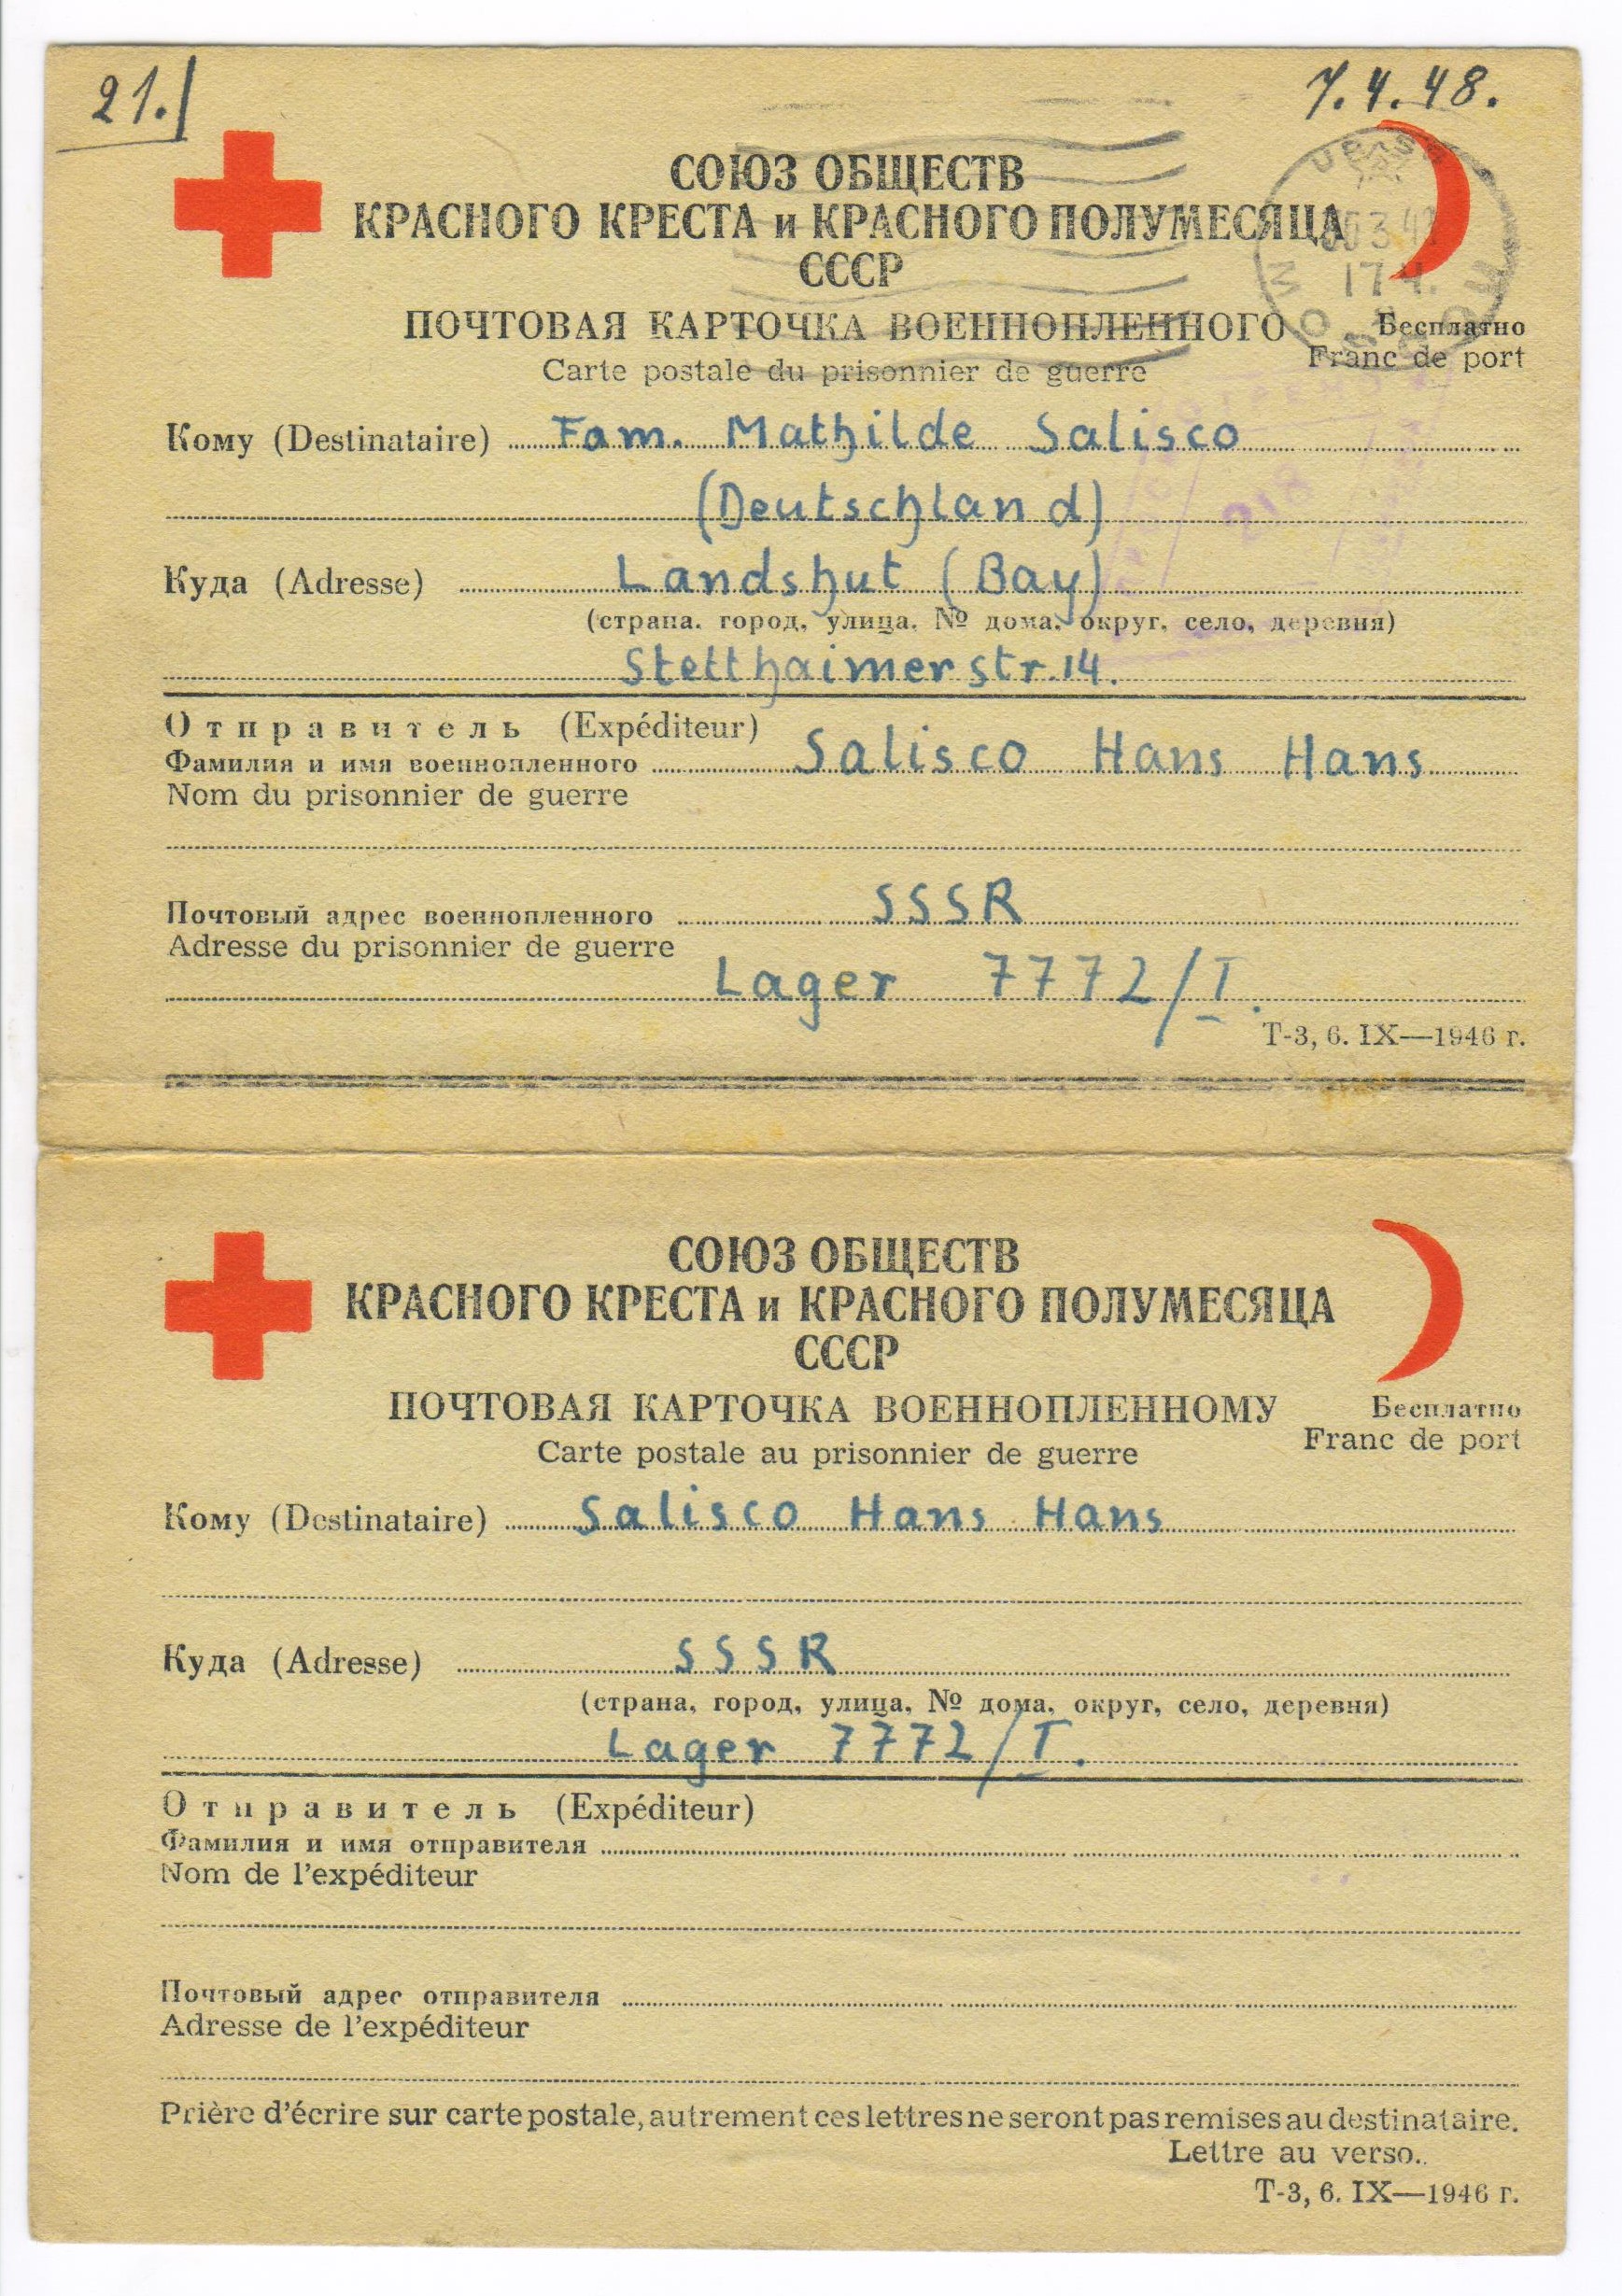 21.
7.4.48.
СОЮЗ ОБЩЕСТВ
КРАСНОГО КРЕСТА и КРАСНОГО ПОЛУМЕСЯЦА
СССР
ПОЧТОВАЯ КАРТОЧКА ВОЕННОПЛЕННОГО
Бесплатно
Carte postale du prisonnier de guerre
Franc de port
Кому (Destinataire) Fam. Mathilde Salisco
(Deutschland)
218
Куда (Adresse) Landshut (Bay)
(страна, город, улица, № дома, округ, село, деревня)
Stetthaimerstr. 14.
Отправитель (Expéditeur)
Фамилия и имя военнопленного Salisco Hans Hans
Nom du prisonnier de guerre
Почтовый адрес военнопленного SSSR
Adresse du prisonnier de guerre
Lager 7772/I.
Т-3, 6. IX—1946 г.
СОЮЗ ОБЩЕСТВ
КРАСНОГО КРЕСТА и КРАСНОГО ПОЛУМЕСЯЦА
СССР
ПОЧТОВАЯ КАРТОЧКА ВОЕННОПЛЕННОМУ
Бесплатно
Carte postale au prisonnier de guerre
Franc de port
Кому (Destinataire) Salisco Hans Hans
Куда (Adresse) SSSR
(страна, город, улица, № дома, округ, село, деревня)
Lager 7772/I.
Отправитель (Expéditeur)
Фамилия и имя отправителя
Nom de l'expéditeur
Почтовый адрес отправителя
Adresse de l'expéditeur
Prière d'écrire sur carte postale, autrement ces lettres ne seront pas remises au destinataire.
Lettre au verso..
Т-3, 6. IX—1946 г.